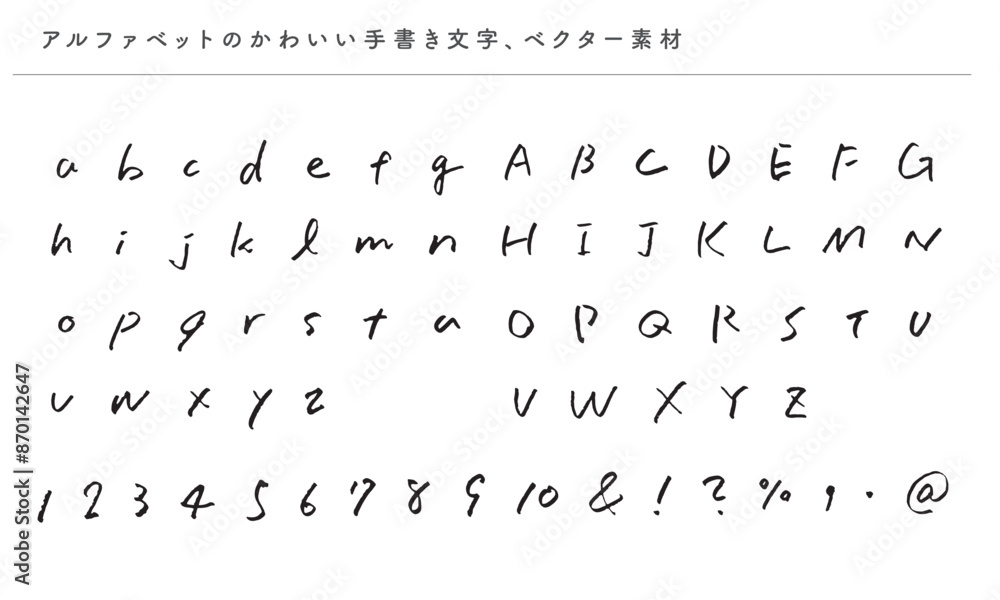 アルファベットのかわいい手書き文字、ベクター素材
a b c d e f g A B C D E F G
h i j k l m n H I J K L M N
o p q r s t u O P Q R S T U
v w x y z V W X Y Z
1 2 3 4 5 6 7 8 9 10 & ! ? % , . @
Adobe Stock | #870142647